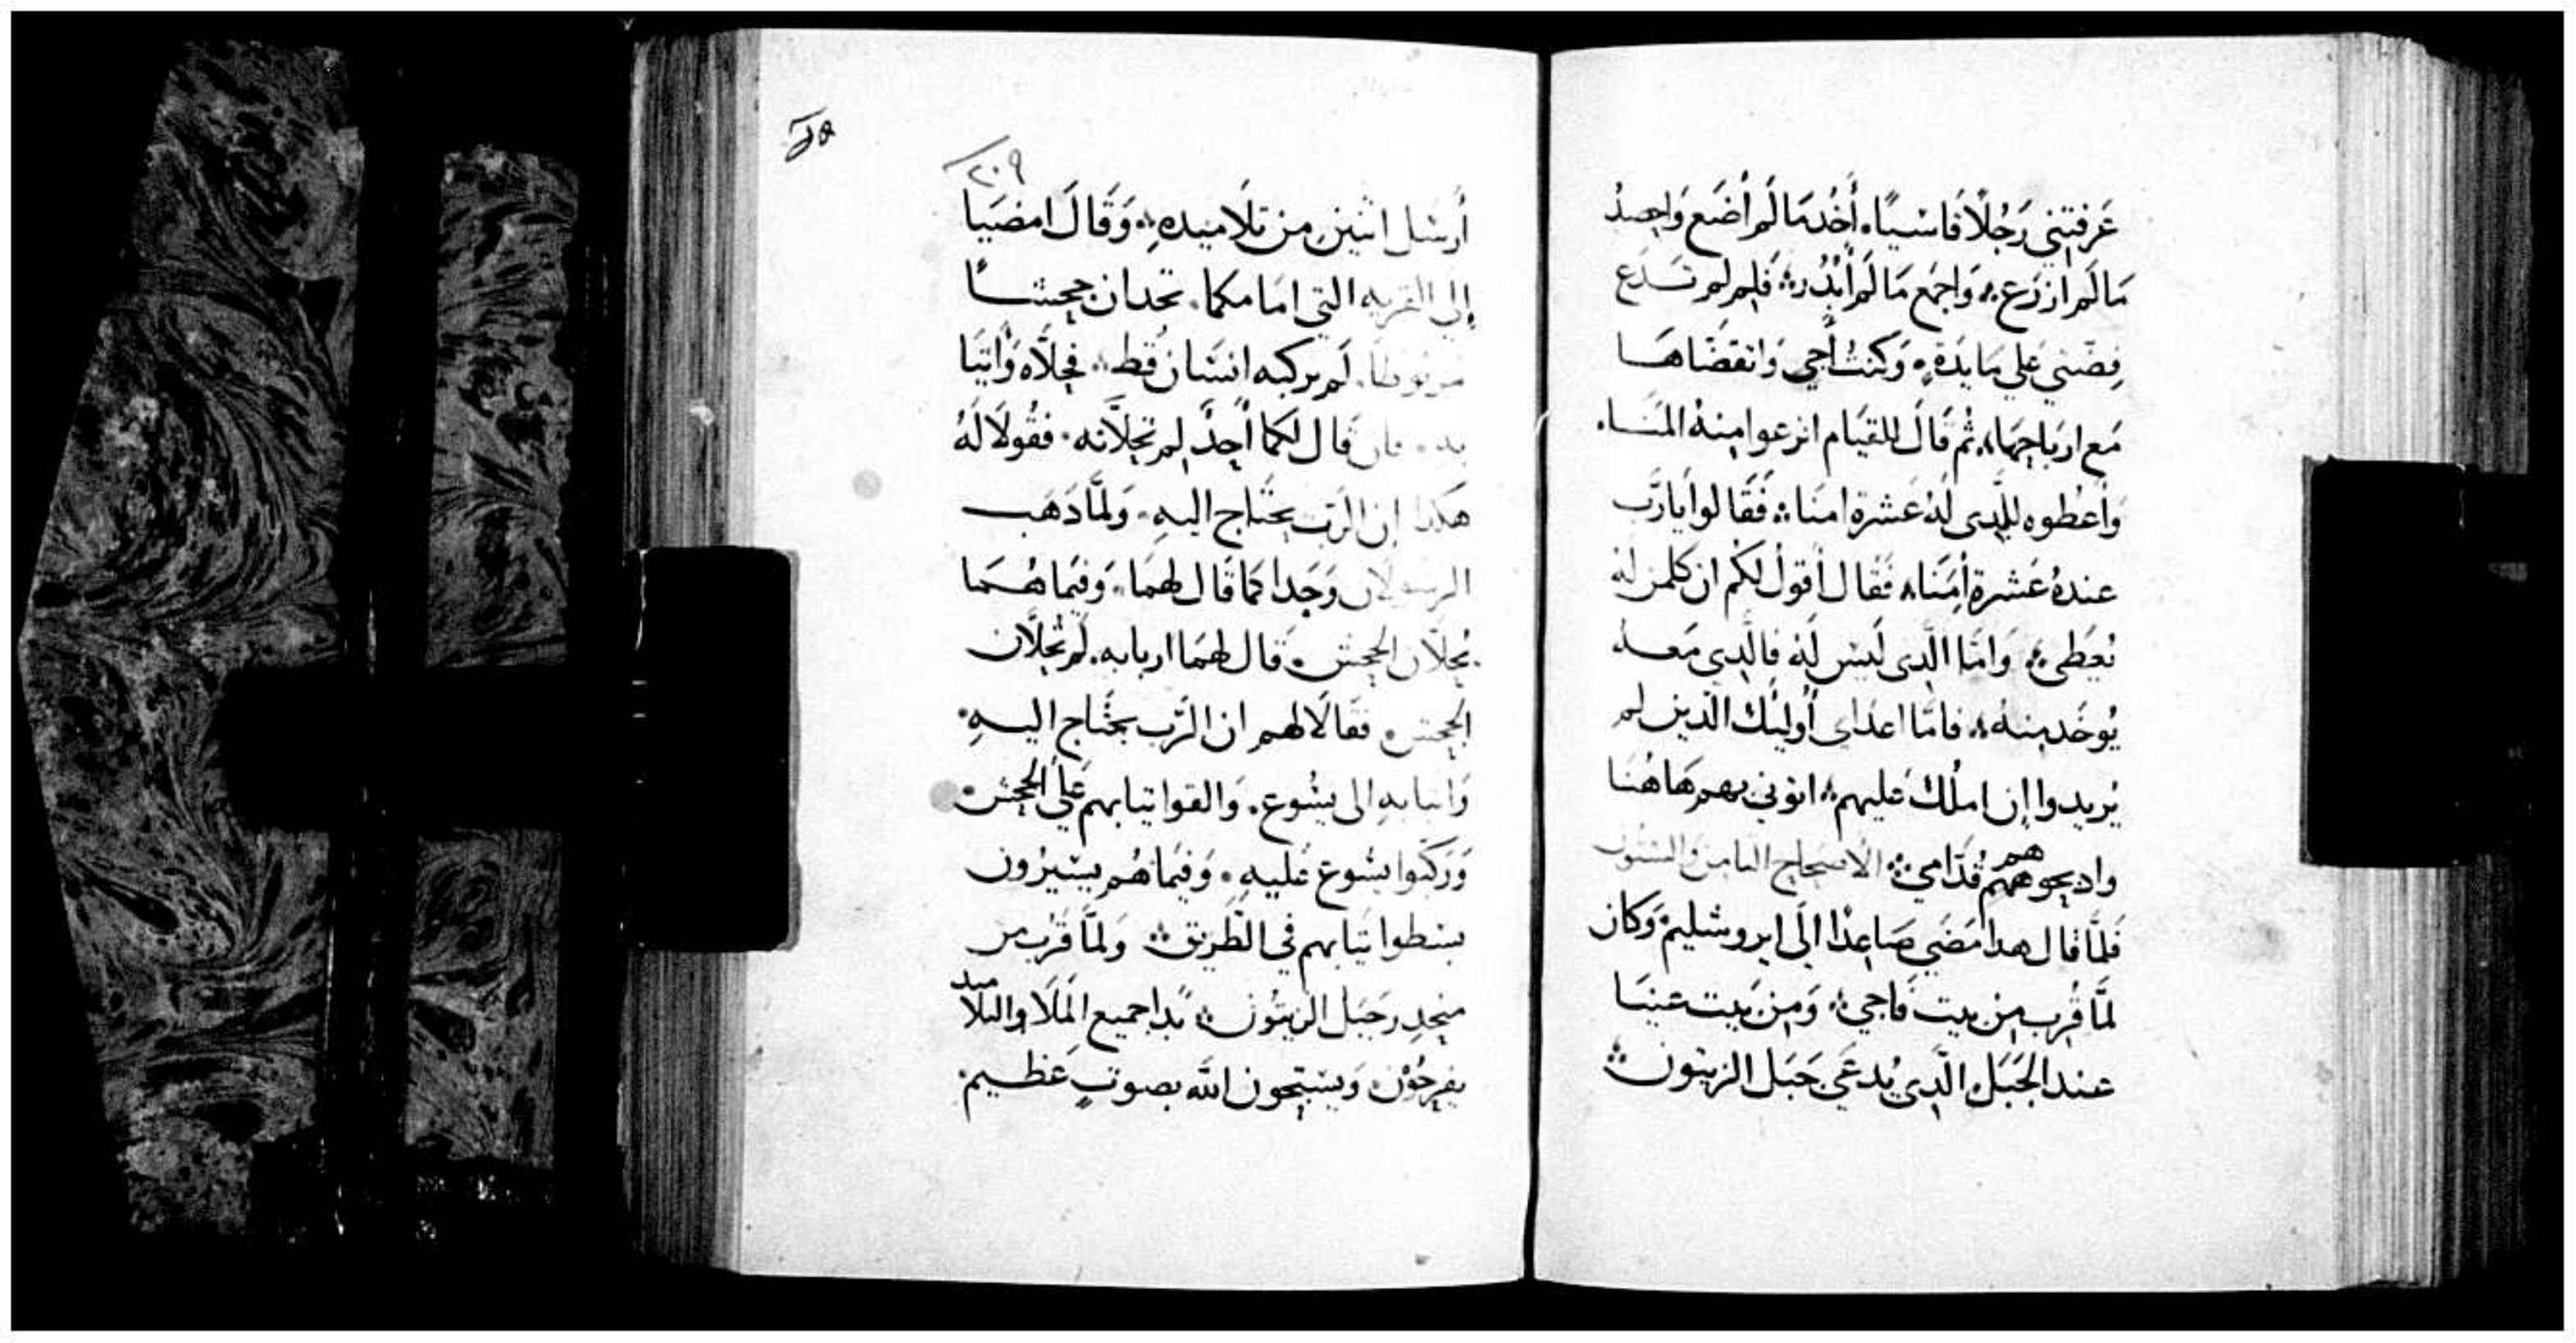 عَرفتِني رَجُلًا قاسيًا. أَخُد مَا لَم أَضَع وَاحصدُ
مَا لَم ازرَع. وَاجمَع مَا لَم أبْدُر. فَلِم لم تَدَع
فِضّتي عَلي مَايدَةٍ. وَكنتُ أجي وَانقضَاهَا
مَع ارباحِهَا. ثُم قَالَ للقيَام انزعوا مِنهُ المَنَا.
وَأعطُوه للَّدِى لَهُ عَشرة امنَا. فَقَالوا يَارَّب
عندهُ عَشرة أمنَا. فَقَال أقولُ لكُم ان كلمن لهُ
يُعَطي. وَامَّا الَّدِى لَيسَ لَهُ فالَّدِي مَعهُ
يُوخَد مِنهُ. فامَّا اعدَاى أُوليِك الدين لم
يُريدوا إن املُك عَليهم. اتوني بهم هَاهُنَا
وادبحوهم هم قُدّامي. الاصحاح الثامن والستون
فَلمَّا قال هدا مَضَي صَاعِدًا الَى ايروشليم وَكان
لمَّا قُرب مِن بيت فَاجي. وَمِن بَيت عَنيَا
عند الجَبَل الَّدِي يُدعَي جَبَل الزيتون
٢٠٩
أرسَل اثنين مِن تَلاميدهِ. وَقَالَ امضيَا
إلي القريه التي امَامكما. تجدان جحشًا
مربوطًا. لَم يركبه انسَان قُط. فحِلّاه وَأتيَا
به. فان قَال لكما أحِدٌ لِم تحِلّانه. فقُولَا لَهُ
هَكدا إن الرّب يحتَاج اليهِ. وَلمَّا دَهَب
الرسولان وَجَدا كما قَال لهمَا. وَفيمَا هُمَا
يُحِلّان الجحِش. قَال لهمَا اربابه. لِم تُحِلّان
الجحِش. فقَالَا لهم ان الرَّب يحتَاج اليهِ.
وَاتيا بهِ الى يسُوع. وَالقوا تيابهم عَلَي الجحِش.
وَرَكبوا يسُوع عَليهِ. وَفيمَا هُم يسيرُون
بسطوا تيَابهم في الطّريق. وَلمَّا قَرُب من
منحِدر جَبَل الزيتُون. بَدا جميع المَلَا وَالتلاميد
يفرحُوْن. وَيسَبّحِون الله بصوتٍ عَظيم.